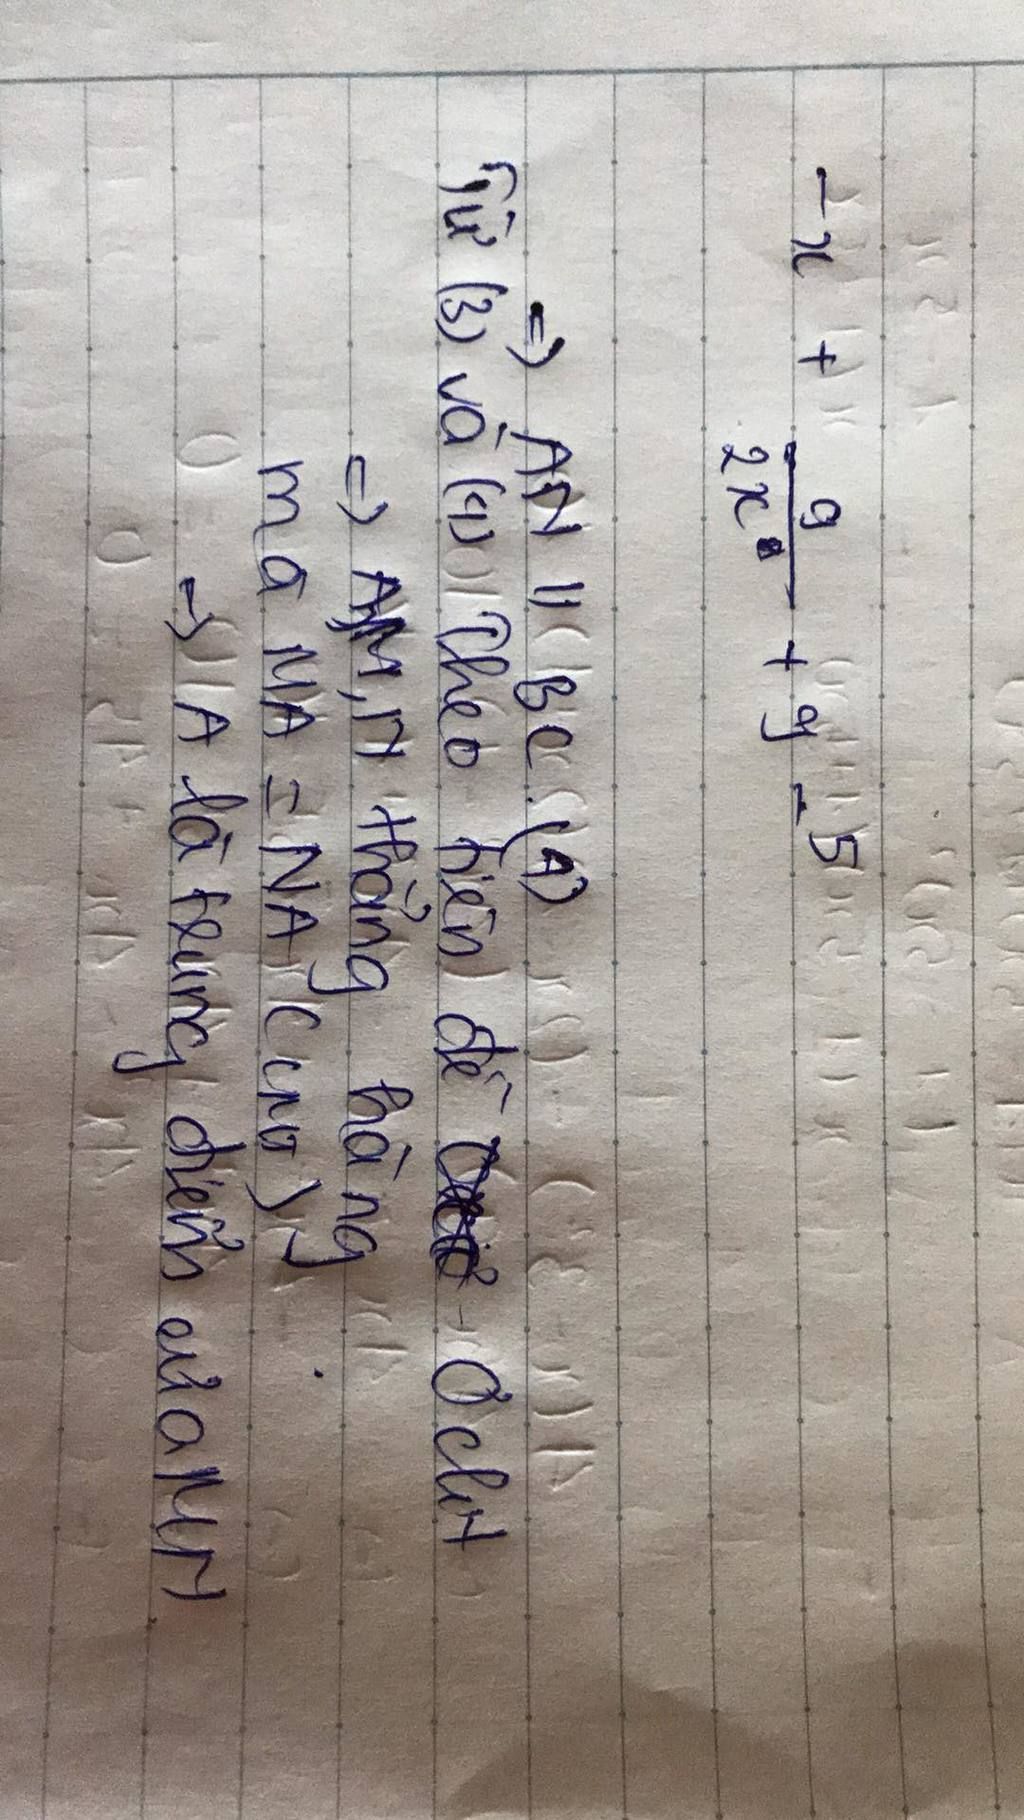 -x + 9/2x + 9 - 5
=> AN // BC (4)
Từ (3) và (4) Theo tiên đề Ơclit
=> A,M,N thẳng hàng
mà MA = NA (cmt)
=> A là trung điểm của MN